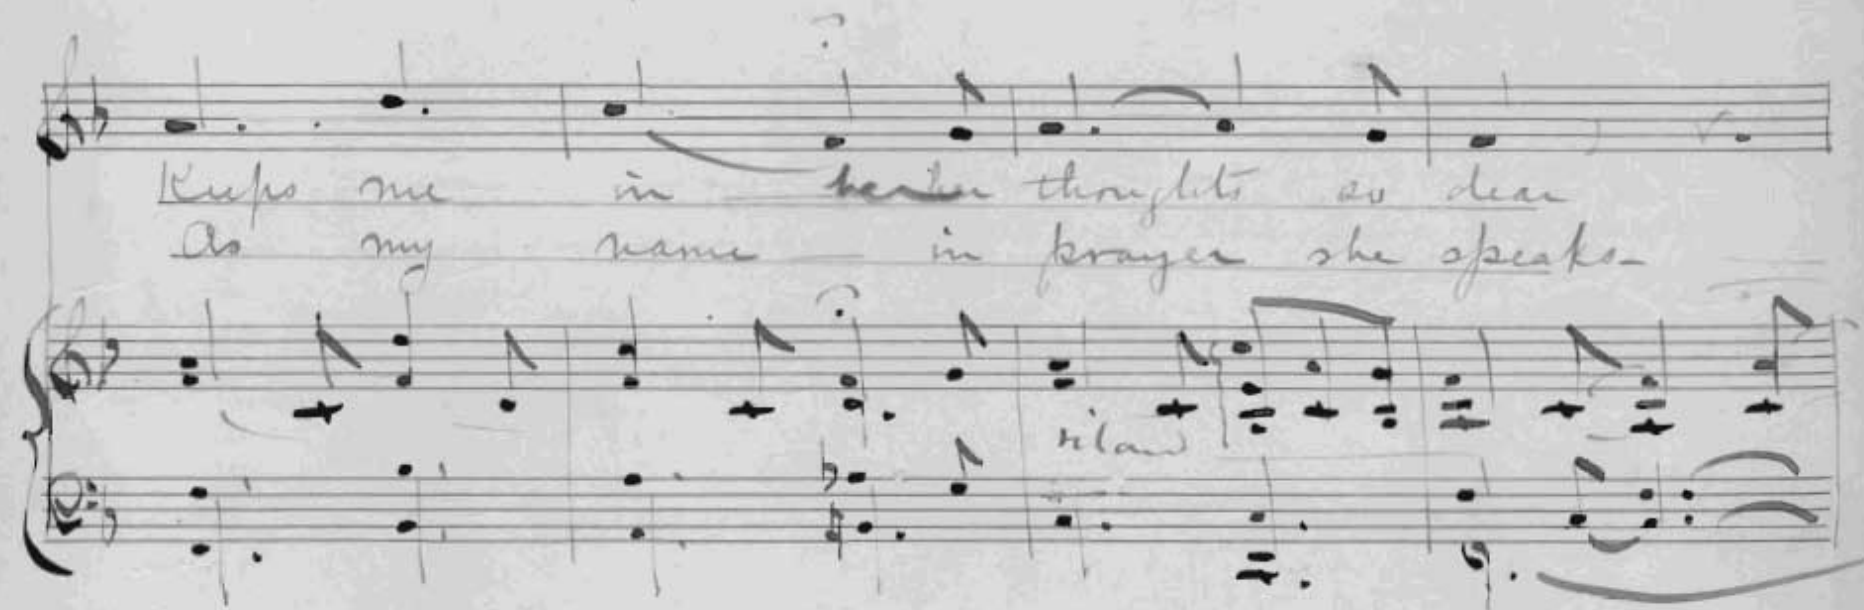 Keeps me in her thoughts so dear
As my name in prayer she speaks-
ritard